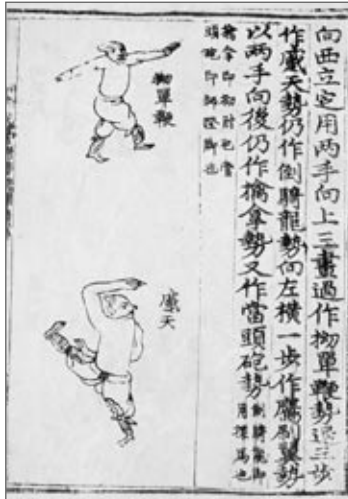 向西立定用兩手向上三畫過作拗單鞭勢退三步
作天勢仍作倒騎龍勢向左橫一步作鷹刷翼勢
以兩手向後仍作擒拿勢又作當頭砲勢倒騎龍即
用探馬也
擒拿即拗肘也當
頭砲即脚也
拗單鞭
天